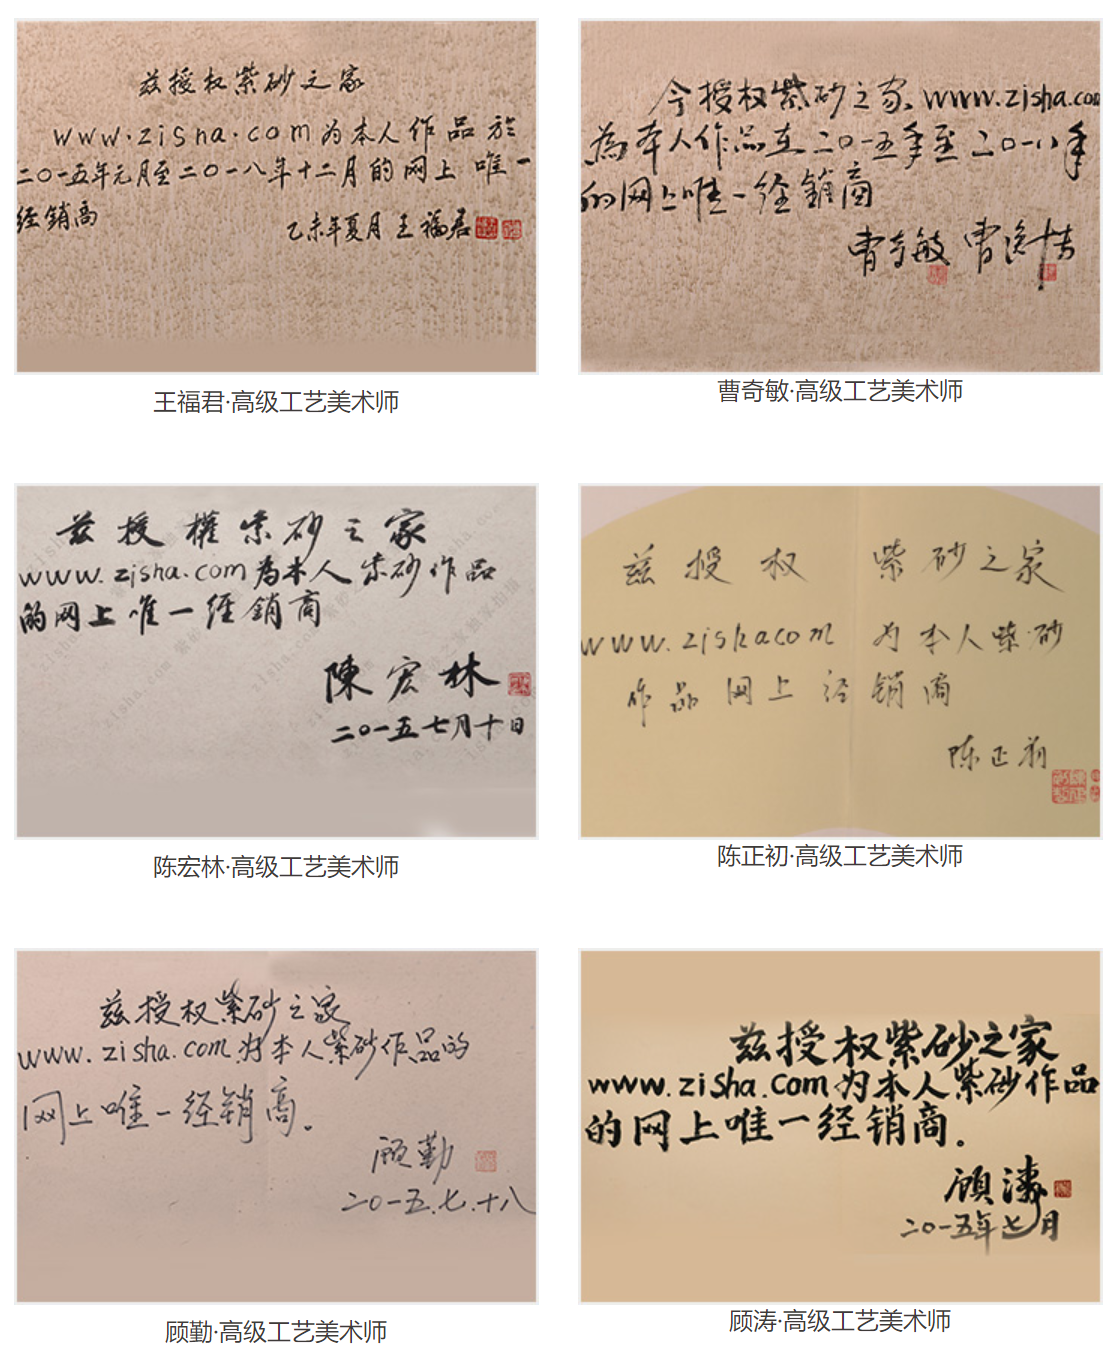 兹授权紫砂之家
www.zisha.com为本人作品於
二〇一五年元月至二〇一八年十二月的网上唯一
经销商
乙未年夏月 王福君
王福君·高级工艺美术师
今授权紫砂之家www.zisha.com
為本人作品在二〇一五年至二〇一八年
的网上唯一经销商
曹奇敏
曹奇敏·高级工艺美术师
兹授權紫砂之家
www.zisha.com為本人紫砂作品
的网上唯一经销商
陳宏林
二〇一五七月十日
陈宏林·高级工艺美术师
兹授权 紫砂之家
www.zishacom 为本人紫砂
作品网上经销商
陈正初
陈正初·高级工艺美术师
兹授权紫砂之家
www.zisha.com为本人紫砂作品的
网上唯一经销商.
顾勤
二〇一五.七.十八
顾勤·高级工艺美术师
兹授权紫砂之家
www.zisha.com为本人紫砂作品
的网上唯一经销商.
顾涛
二〇一五年七月
顾涛·高级工艺美术师